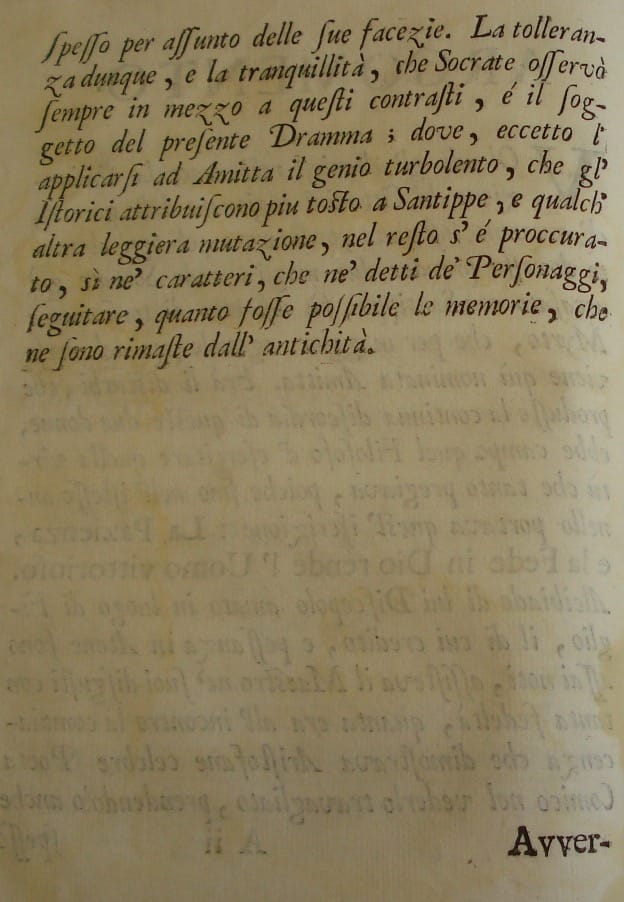 ſpeſſo per aſſunto delle ſue facezie. La tolleran-
za dunque, e la tranquillità, che Socrate oſſervò
ſempre in mezzo a queſti contraſti, é il ſog-
getto del preſente Dramma; dove, eccetto l'
applicarſi ad Amitta il genio turbolento, che gl'
Iſtorici attribuiſcono piu toſto a Santippe, e qualch'
altra leggiera mutazione, nel reſto s' é proccura-
to, sì ne' caratteri, che ne' detti de' Perſonaggi,
ſeguitare, quanto foſſe poſſibile le memorie, che
ne ſono rimaſte dall' antichità.
Avver-